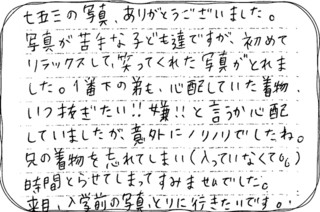 七五三の写真、ありがとうございました。
写真が苦手な子ども達ですが、初めて
リラックスして、笑ってくれた写真がとれま
した。1番下の弟も、心配していた着物、
いつ抜ぎたい!!嫌!!と言うか心配
していましたが、意外にノリノリでしたね。
兄の着物を忘れてしまい(入っていなくて
時間とらせてしまってすみませんでした。
来月、入学前の写真、とりに行きたいです。